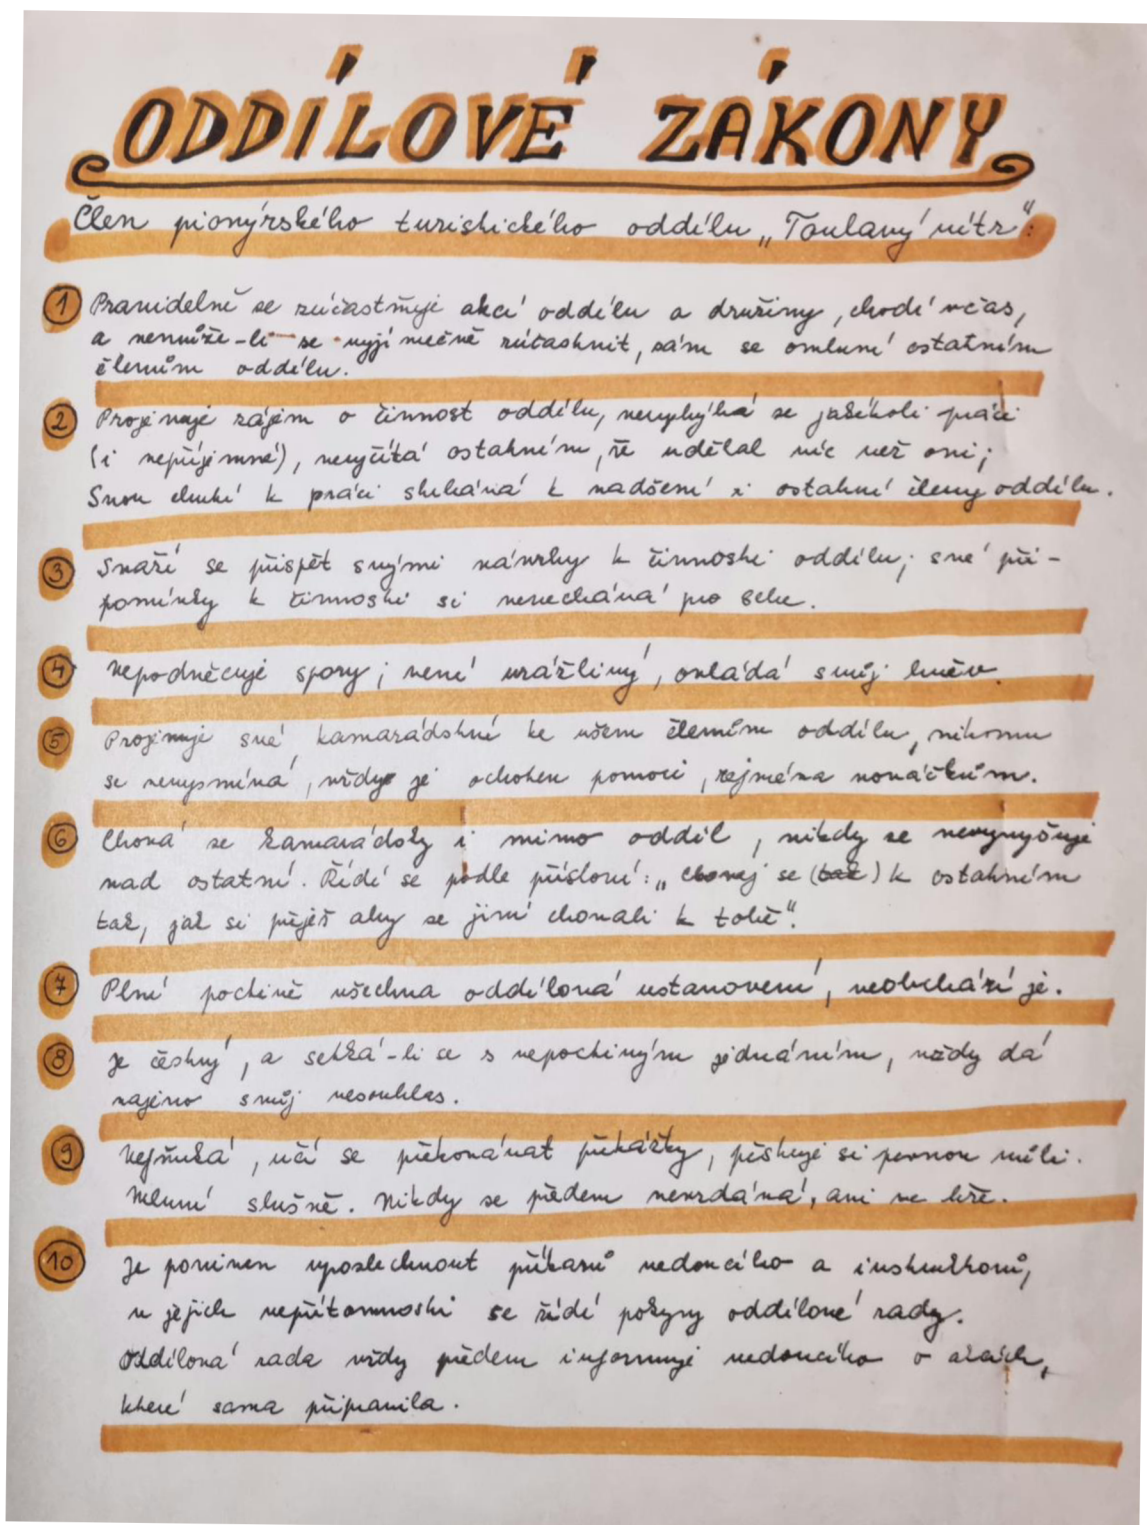 ODDÍLOVÉ ZÁKONY
Člen pionýrského turistického oddílu „Toulavý vítr“:
1 Pravidelně se zúčastňuje akcí oddílu a družiny, chodí včas,
a nemůže-li se vyjímečně zúčastnit, sám se omluví ostatním
členům oddílu.
2 Projevuje zájem o činnost oddílu, nevyhýbá se jakékoli práci
(i nepříjemné), nevyčítá ostatním, že udělal víc než oni;
Svou chutí k práci strhává k nadšení i ostatní členy oddílu.
3 Snaží se přispět svými návrhy k činnosti oddílu; své při-
pomínky k činnosti si nenechává pro sebe.
4 Nepodněcuje spory; není urážlivý, ovládá svůj hněv.
5 Projevuje své kamarádství ke všem členům oddílu, nikomu
se nevysmívá, vždy je ochoten pomoci, zejména nováčkům.
6 Chová se kamarádsky i mimo oddíl, nikdy se nevyvyšuje
nad ostatní. Řídí se podle přísloví: „Chovej se (tak) k ostatním
tak, jak si přeješ aby se jiní chovali k tobě“.
7 Plní poctivě všechna oddílová ustanovení, neobchází je.
8 Je čestný, a setká-li se s nepoctivým jednáním, vždy dá
najevo svůj nesouhlas.
9 Nefňuká, učí se překonávat překážky, pěstuje si pevnou vůli.
Mluví slušně. Nikdy se předem nevzdává, ani ve hře.
10 Je povinen uposlechnout příkazů vedoucího a instruktorů,
v jejich nepřítomnosti se řídí pokyny oddílové rady.
Oddílová rada vždy předem informuje vedoucího o akcích,
které sama připravila.